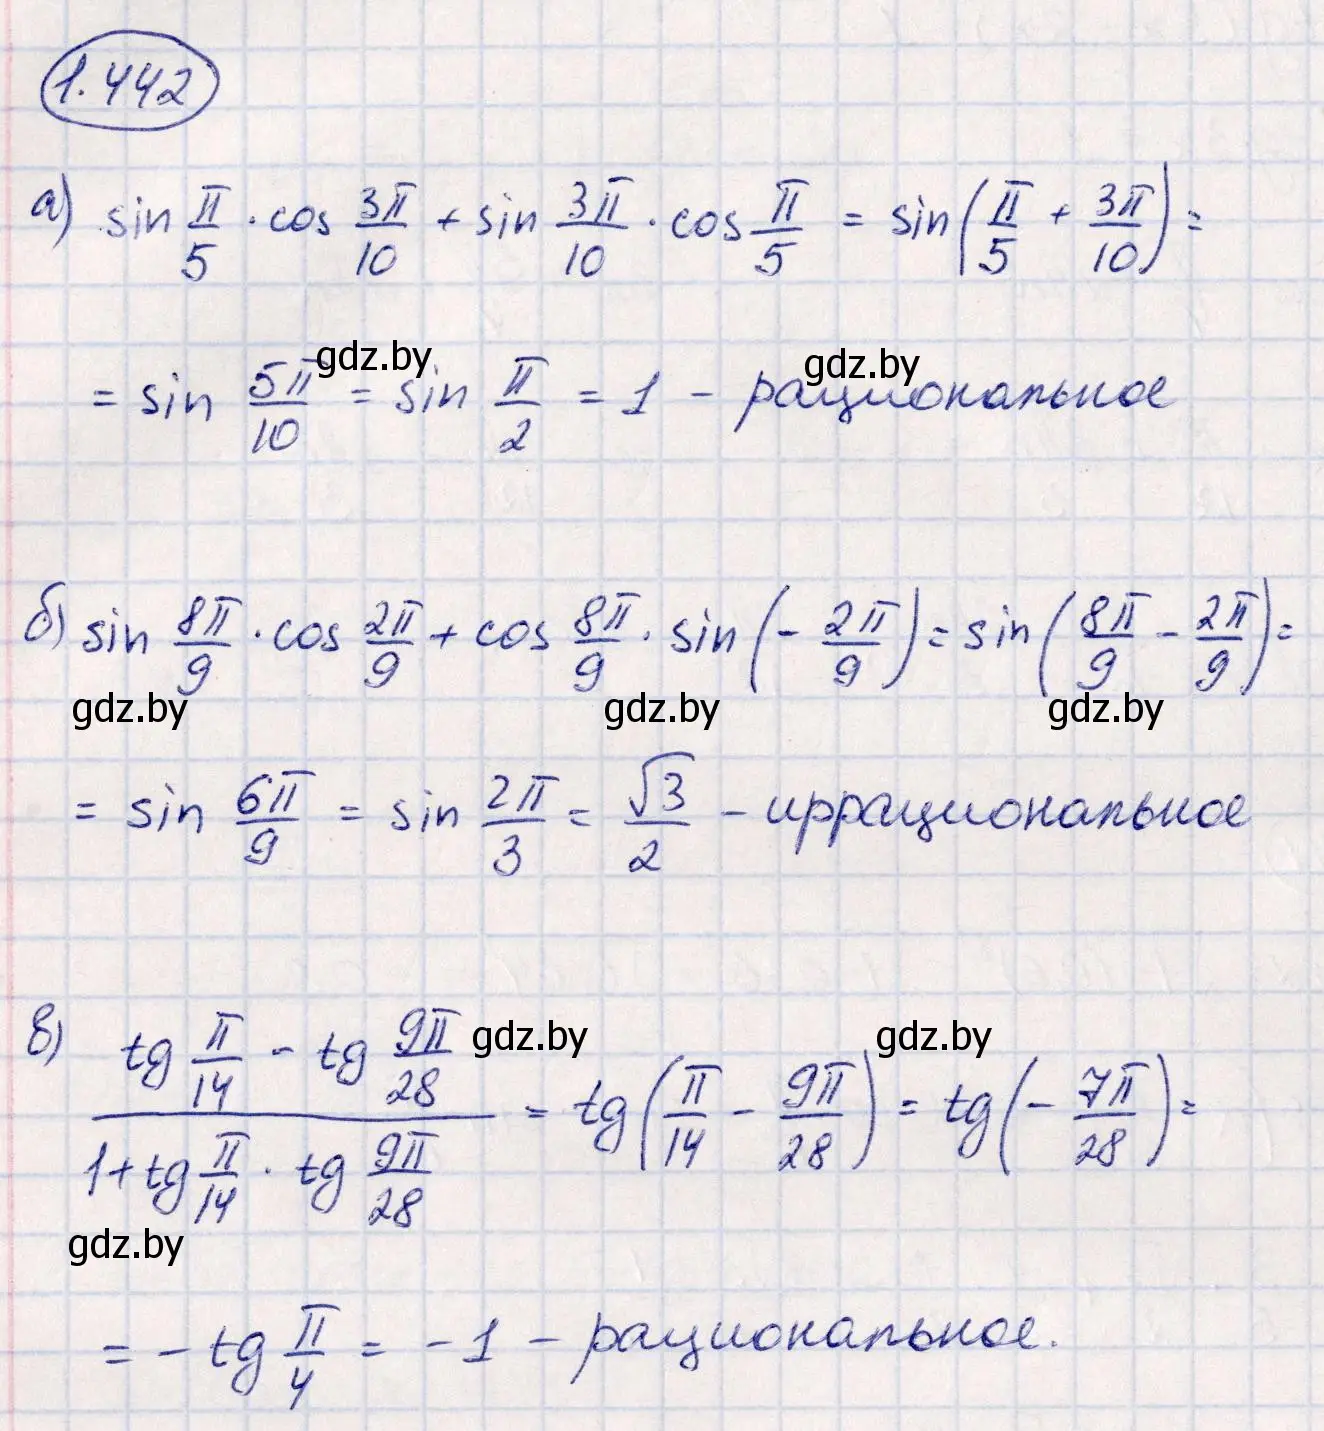 1.442
а) sin π/5 · cos 3π/10 + sin 3π/10 · cos π/5 = sin(π/5 + 3π/10) =
gdz.by gdz.by
= sin 5π/10 = sin π/2 = 1 - рациональное
б) sin 8π/9 · cos 2π/9 + cos 8π/9 · sin(- 2π/9) = sin(8π/9 - 2π/9) =
gdz.by gdz.by gdz.by
= sin 6π/9 = sin 2π/3 = √3/2 - иррациональное
gdz.by gdz.by
в) (tg π/14 - tg 9π/28)/(1 + tg π/14 · tg 9π/28) = tg(π/14 - 9π/28) = tg(- 7π/28) =
gdz.by
= - tg π/4 = -1 - рациональное.